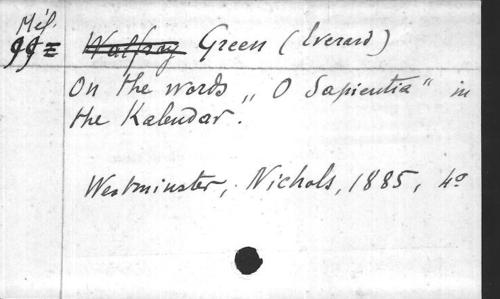 Mél.
99 Green (Everard)
On the words „ O Sapientia “ in
the Kalendar.
Westminster, Nichols, 1885, 4º